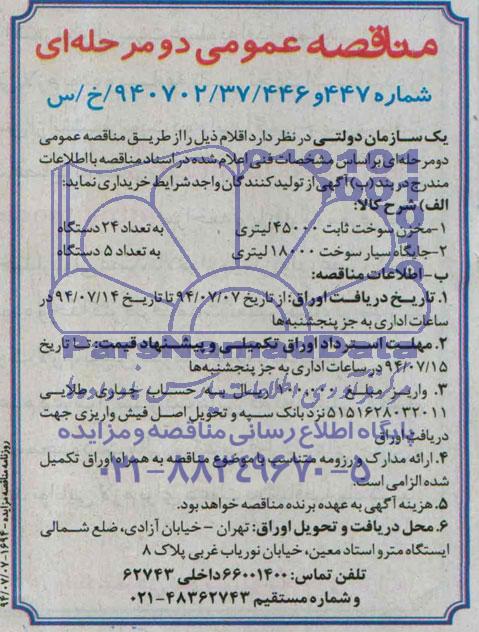 مناقصه عمومی دو مرحله‌ای
شماره ۴۴۷و۹۴۰۷۰۲/۳۷/۴۴۶/خ/س
یک سازمان دولتی در نظر دارد اقلام ذیل را از طریق مناقصه عمومی
دومرحله‌ای براساس مشخصات فنی اعلام شده در اسناد مناقصه با اطلاعات
مندرج در بند (ب) آگهی از تولیدکنندگان واجد شرایط خریداری نماید:
الف) شرح کالا:
۱-مخزن سوخت ثابت ۴۵۰۰۰ لیتری به تعداد ۲۴ دستگاه
۲-جایگاه سیار سوخت ۱۸۰۰۰ لیتری به تعداد ۵ دستگاه
ب- اطلاعات مناقصه:
۱. تاریخ دریافت اوراق: از تاریخ ۹۴/۰۷/۰۷ تا تاریخ ۹۴/۰۷/۱۴ در
ساعات اداری به جز پنجشنبه‌ها
۲. مهلت استرداد اوراق تکمیلی و پیشنهاد قیمت: تا تاریخ
۹۴/۰۷/۱۵ در ساعات اداری به جز پنجشنبه‌ها
۳. واریز مبلغ ریال به حساب جاری طلایی
۵۱۵۱۶۲۸۰۳۲۰۱۱ نزد بانک سپه و تحویل اصل فیش واریزی جهت
دریافت اوراق
۴. ارائه مدارک و رزومه متناسب با موضوع مناقصه به همراه اوراق تکمیل
شده الزامی است.
۵. هزینه آگهی به عهده برنده مناقصه خواهد بود.
۶. محل دریافت و تحویل اوراق: تهران – خیابان آزادی، ضلع شمالی
ایستگاه مترو استاد معین، خیابان نوریاب غربی پلاک ۸
تلفن تماس: ۶۶۰۰۱۴۰۰ داخلی ۶۲۷۴۳
و شماره مستقیم ۴۸۳۶۲۷۴۳-۰۲۱
روزنامه مناقصه مزایده - ۱۶۹۴ - ۹۴/۰۷/۰۷
ParsNamadData
پایگاه اطلاع رسانی مناقصه و مزایده
۰۲۱-۸۸۳۴۹۶۷۰-۵